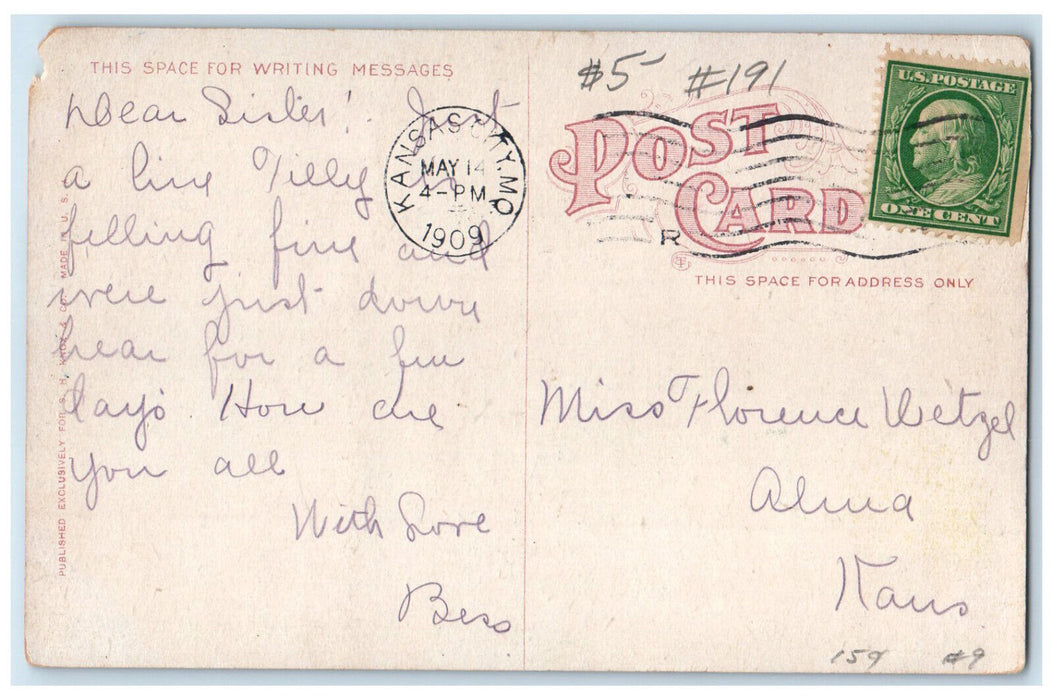 THIS SPACE FOR WRITING MESSAGES
Dear Sister! Just
a line Tilly is
felling fine and
were just down
hear for a few
days. How are
you all
With Love
Bess
PUBLISHED EXCLUSIVELY FOR S. H. KNOX & CO. MADE IN U. S. A.
KANSAS CITY, MO.
MAY 14
4-PM
1909
$5- #191
POST
CARD
R
THIS SPACE FOR ADDRESS ONLY
U.S. POSTAGE
ONE CENT
Miss Florence Wetzel
Alma
Kans
#9